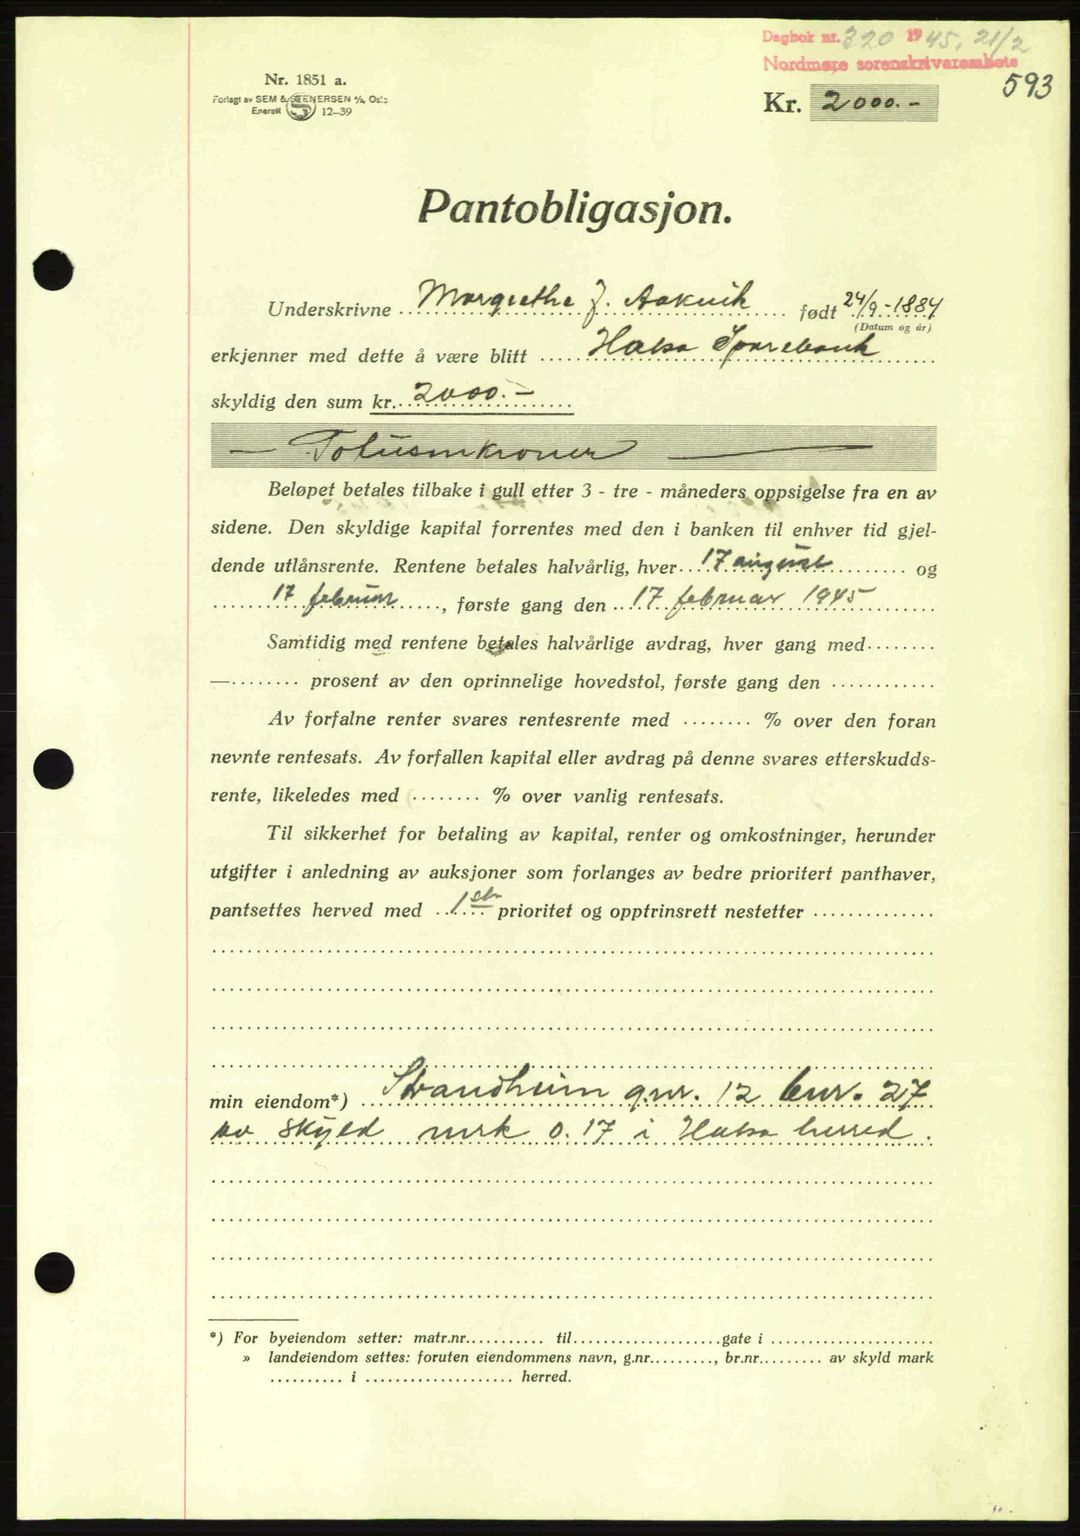 Dagbok nr. 320 1945, 21/2
Nordmøre sorenskriverembete
593
Nr. 1851 a.
Forlagt av SEM & STENERSEN A/S, Oslo
Enerett 12—39
Kr. 2000.-
Pantobligasjon.
Underskrivne Margrethe J. Aakvik født 24/9-1884
(Datum og år)
erkjenner med dette å være blitt Halsa Sparebank
skyldig den sum kr. 2000.-
— Totusenkroner —
Beløpet betales tilbake i gull etter 3 - tre - måneders oppsigelse fra en av
sidene. Den skyldige kapital forrentes med den i banken til enhver tid gjel-
dende utlånsrente. Rentene betales halvårlig, hver 17 august og
17 februar, første gang den 17 februar 1945
Samtidig med rentene betales halvårlige avdrag, hver gang med
— prosent av den oprinnelige hovedstol, første gang den
Av forfalne renter svares rentesrente med % over den foran
nevnte rentesats. Av forfallen kapital eller avdrag på denne svares etterskudds-
rente, likeledes med % over vanlig rentesats.
Til sikkerhet for betaling av kapital, renter og omkostninger, herunder
utgifter i anledning av auksjoner som forlanges av bedre prioritert panthaver,
pantsettes herved med 1ste prioritet og opptrinsrett nestetter
min eiendom*) Strandheim gnr. 12 bnr. 27
av skyld mrk 0.17 i Halsa herred.
*) For byeiendom setter: matr.nr. til gate i
» landeiendom settes: foruten eiendommens navn, g.nr. , br.nr. av skyld mark
i herred.